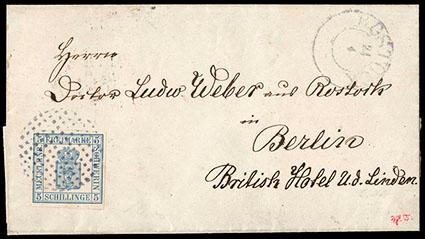 Herrn
Doctor Ludw Weber aus Rostock
in
Berlin
British Hotel U. d. Linden.
5 FREIMARKE 5
MECKLENB.
SCHWERIN
5 SCHILLINGE 5